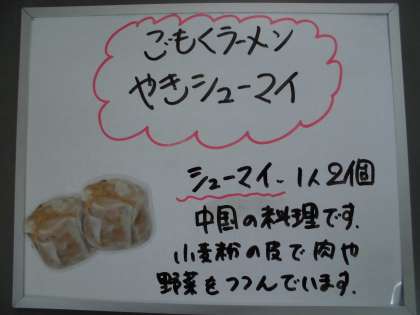 ごもくラーメン
やきシューマイ
シューマイ-1人2個
中国の料理です.
小麦粉の皮で肉や
野菜をつつんでいます.